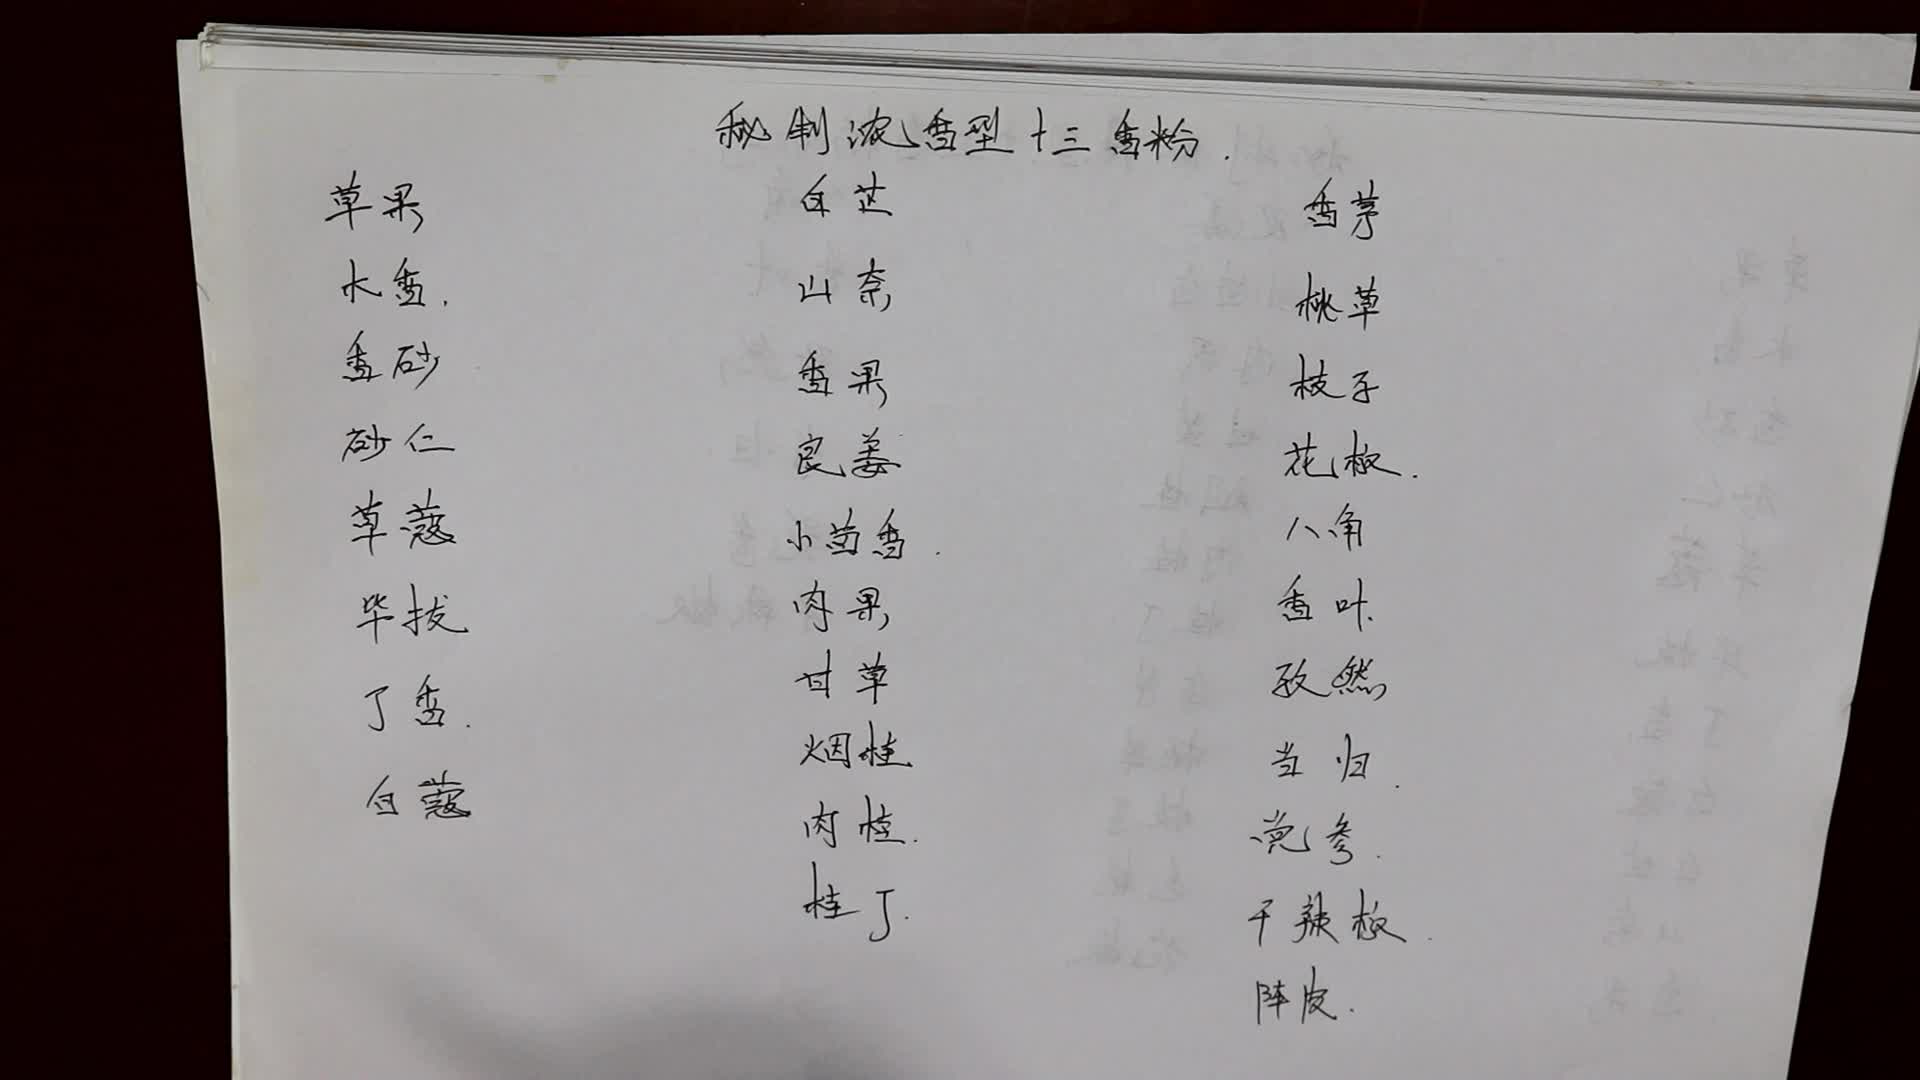 秘制浓香型十三香粉.
草果
木香.
香砂
砂仁
草蔻
毕拔
丁香.
白蔻
白芷
山奈
香果
良姜
小茴香.
肉果
甘草
烟桂
肉桂.
桂丁.
香茅
桃草
枝子
花椒.
八角
香叶.
孜然
当归.
党参.
干辣椒.
陈皮.